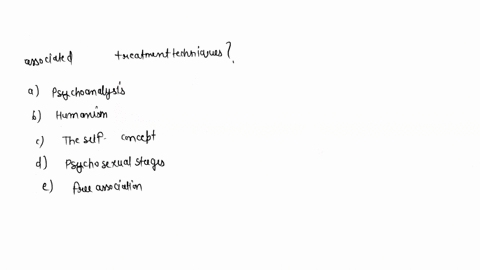 associated treatment techniques?
a) Psychoanalysis
b) Humanism
c) The self- concept
d) Psychosexual stages
e) free association